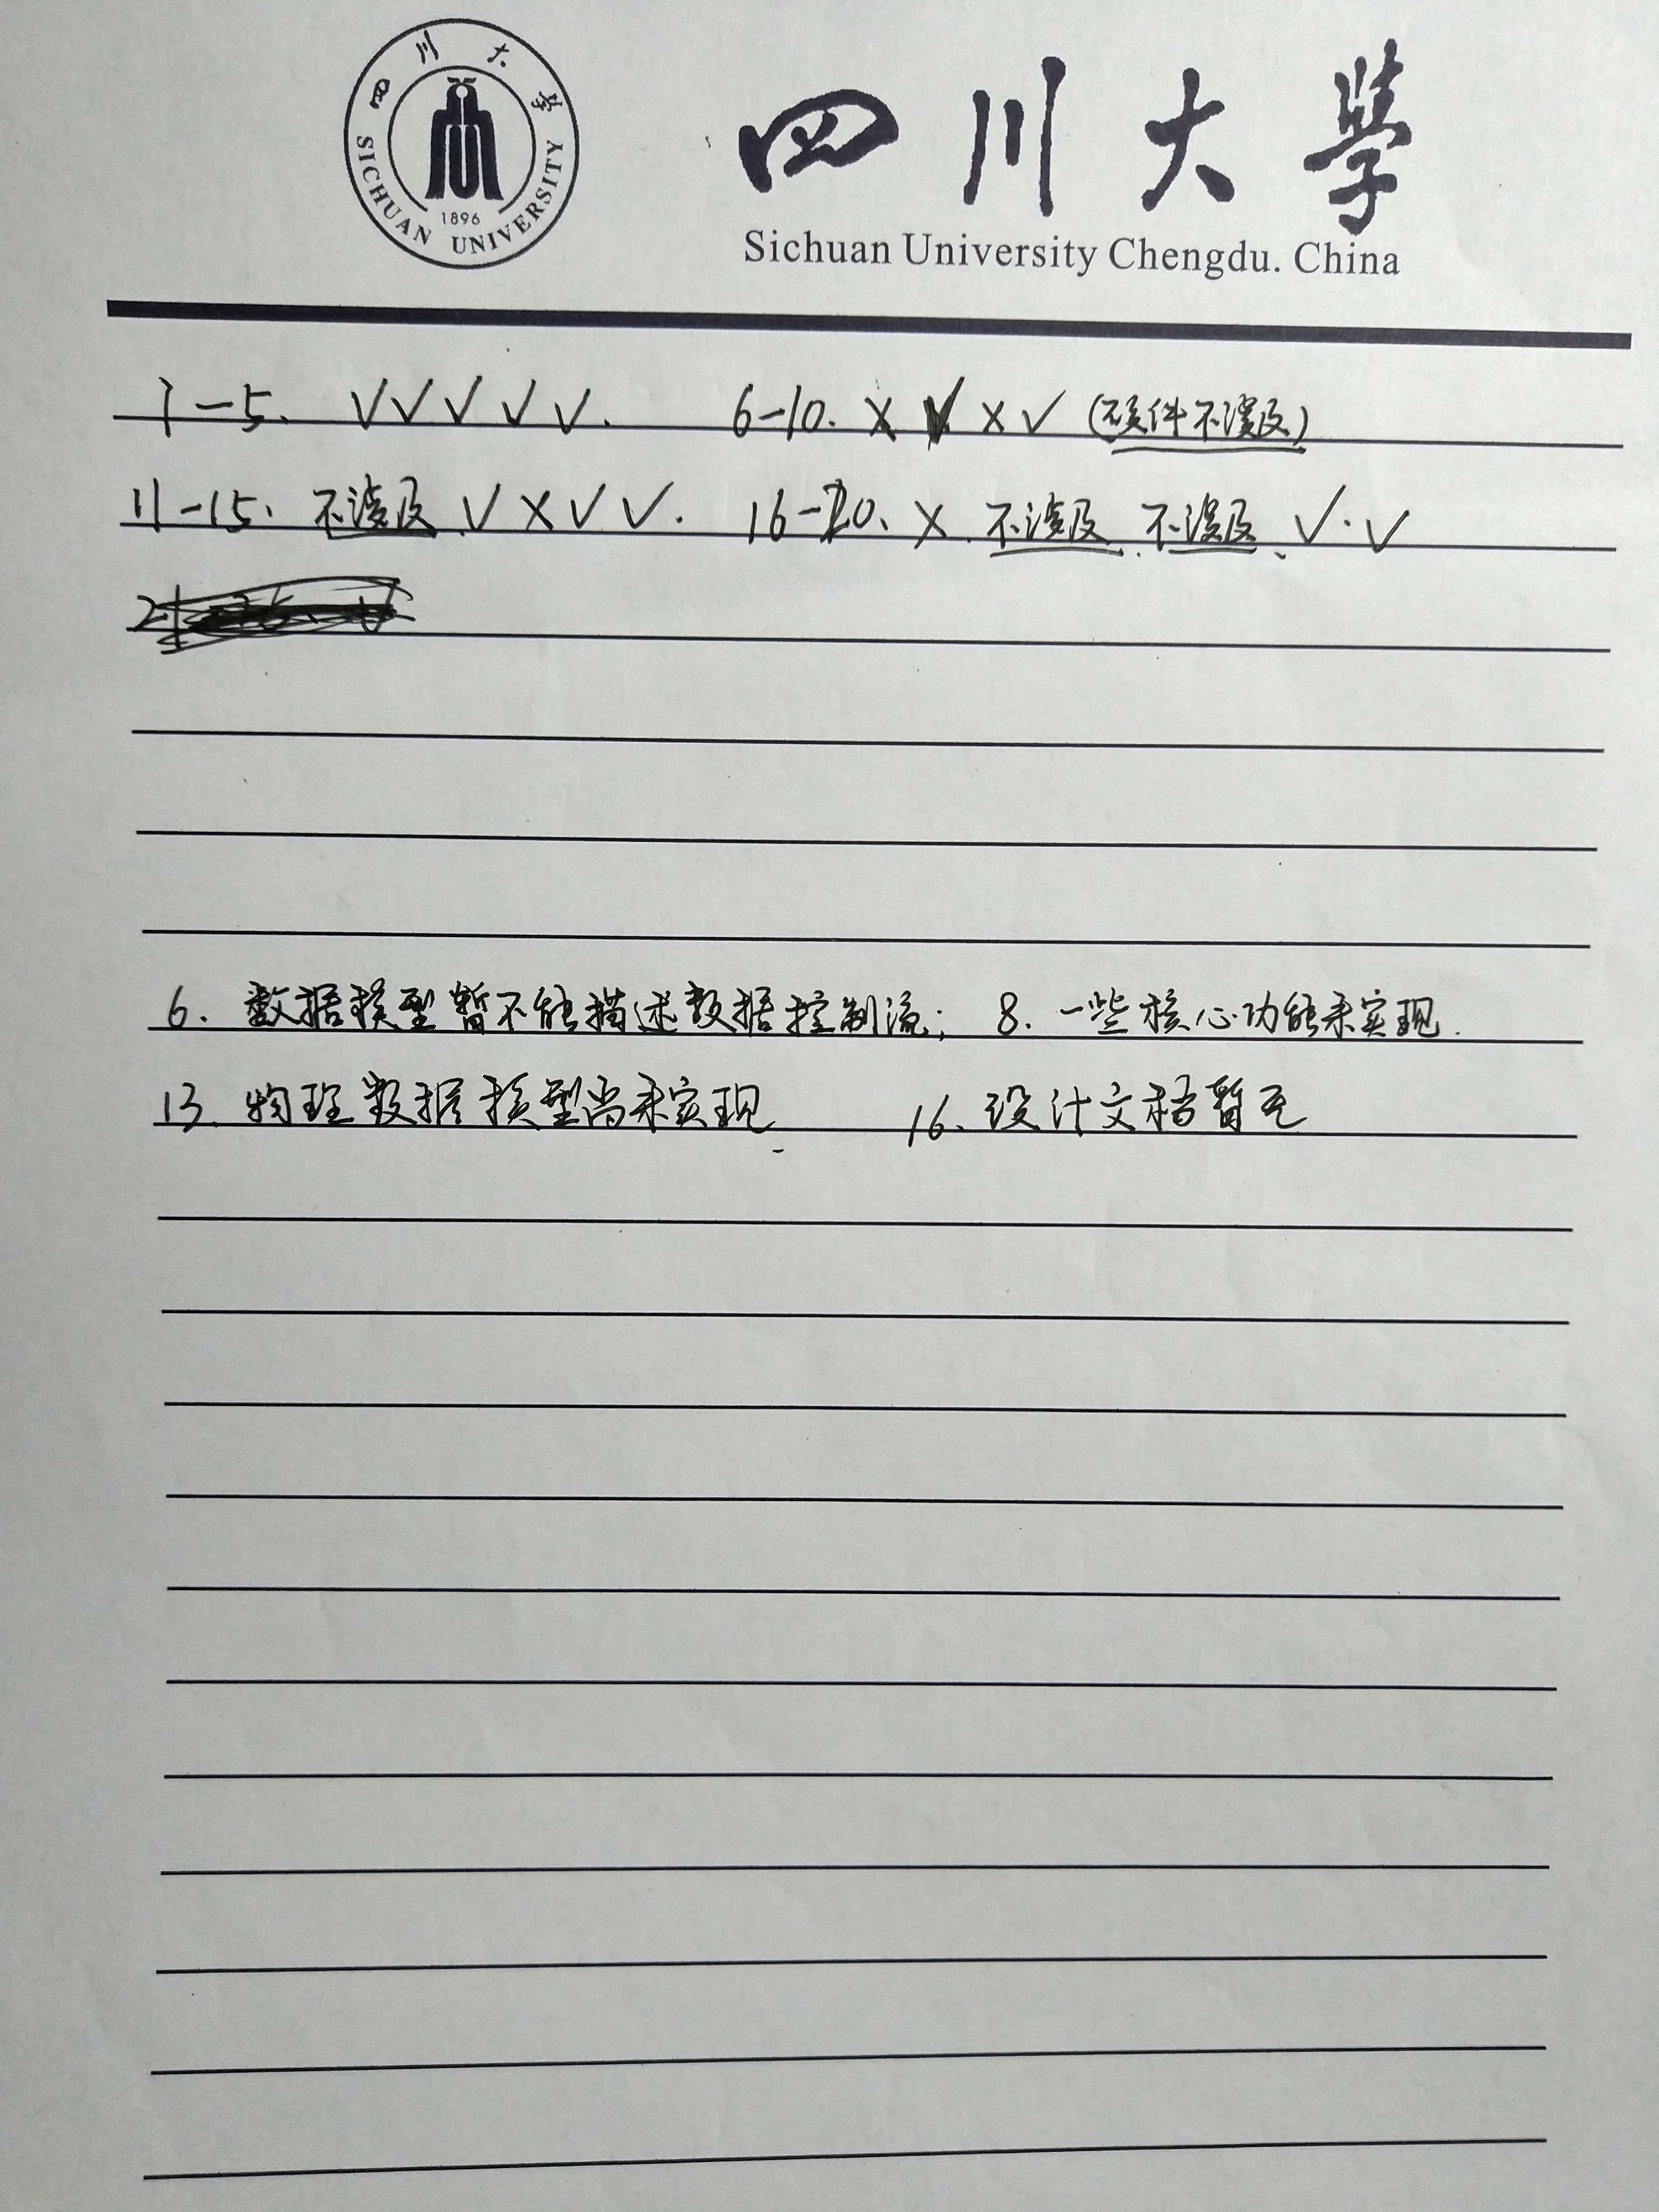 四川大學
SICHUAN UNIVERSITY
1896
四川大學
Sichuan University Chengdu. China
1-5. √√√√√. 6-10. × √ × √ (硬件不涉及)
11-15. 不涉及 √ × √ √. 16-20. × 不涉及. 不涉及、√.√
2
6. 数据模型暂不能描述数据控制流; 8. 一些核心功能未实现.
13. 物理数据模型尚未实现. 16. 设计文档暂无